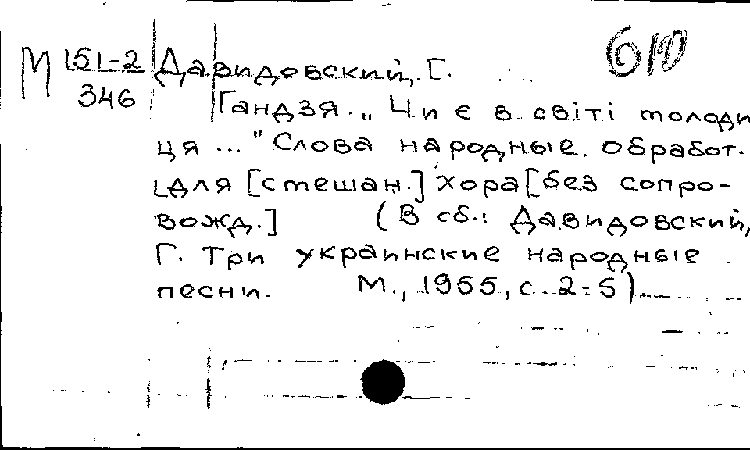 М 151-2
346
610
Давидовский, Г.
Гандзя. „Чи є в світі молоди
ця ..." Слова народные. Обработ.
для [смешан.] хора [без сопро-
вожд.] (В сб.: Давидовский,
Г. Три украинские народные
песни. М., 1955, с. 2-5).